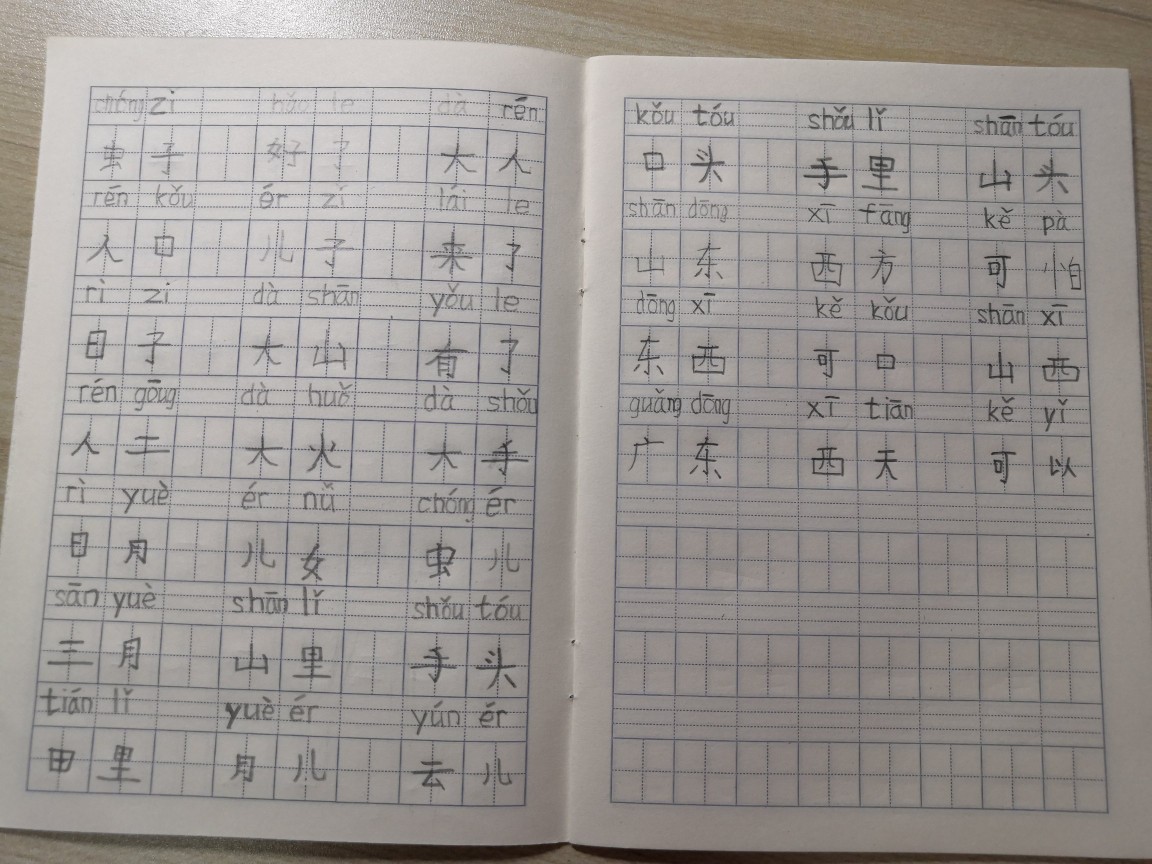 chóng zi hǎo le dà rén
虫子 好了 大人
rén kǒu ér zi lái le
人口 儿子 来了
rì zi dà shān yǒu le
日子 大山 有了
rén gōng dà huǒ dà shǒu
人工 大火 大手
rì yuè ér nǚ chóng ér
日月 儿女 虫儿
sān yuè shān lǐ shǒu tóu
三月 山里 手头
tián lǐ yuè ér yún ér
田里 月儿 云儿
kǒu tóu shǒu lǐ shān tóu
口头 手里 山头
shān dōng xī fāng kě pà
山东 西方 可怕
dōng xī kě kǒu shān xī
东西 可口 山西
guǎng dōng xī tiān kě yǐ
广东 西天 可以